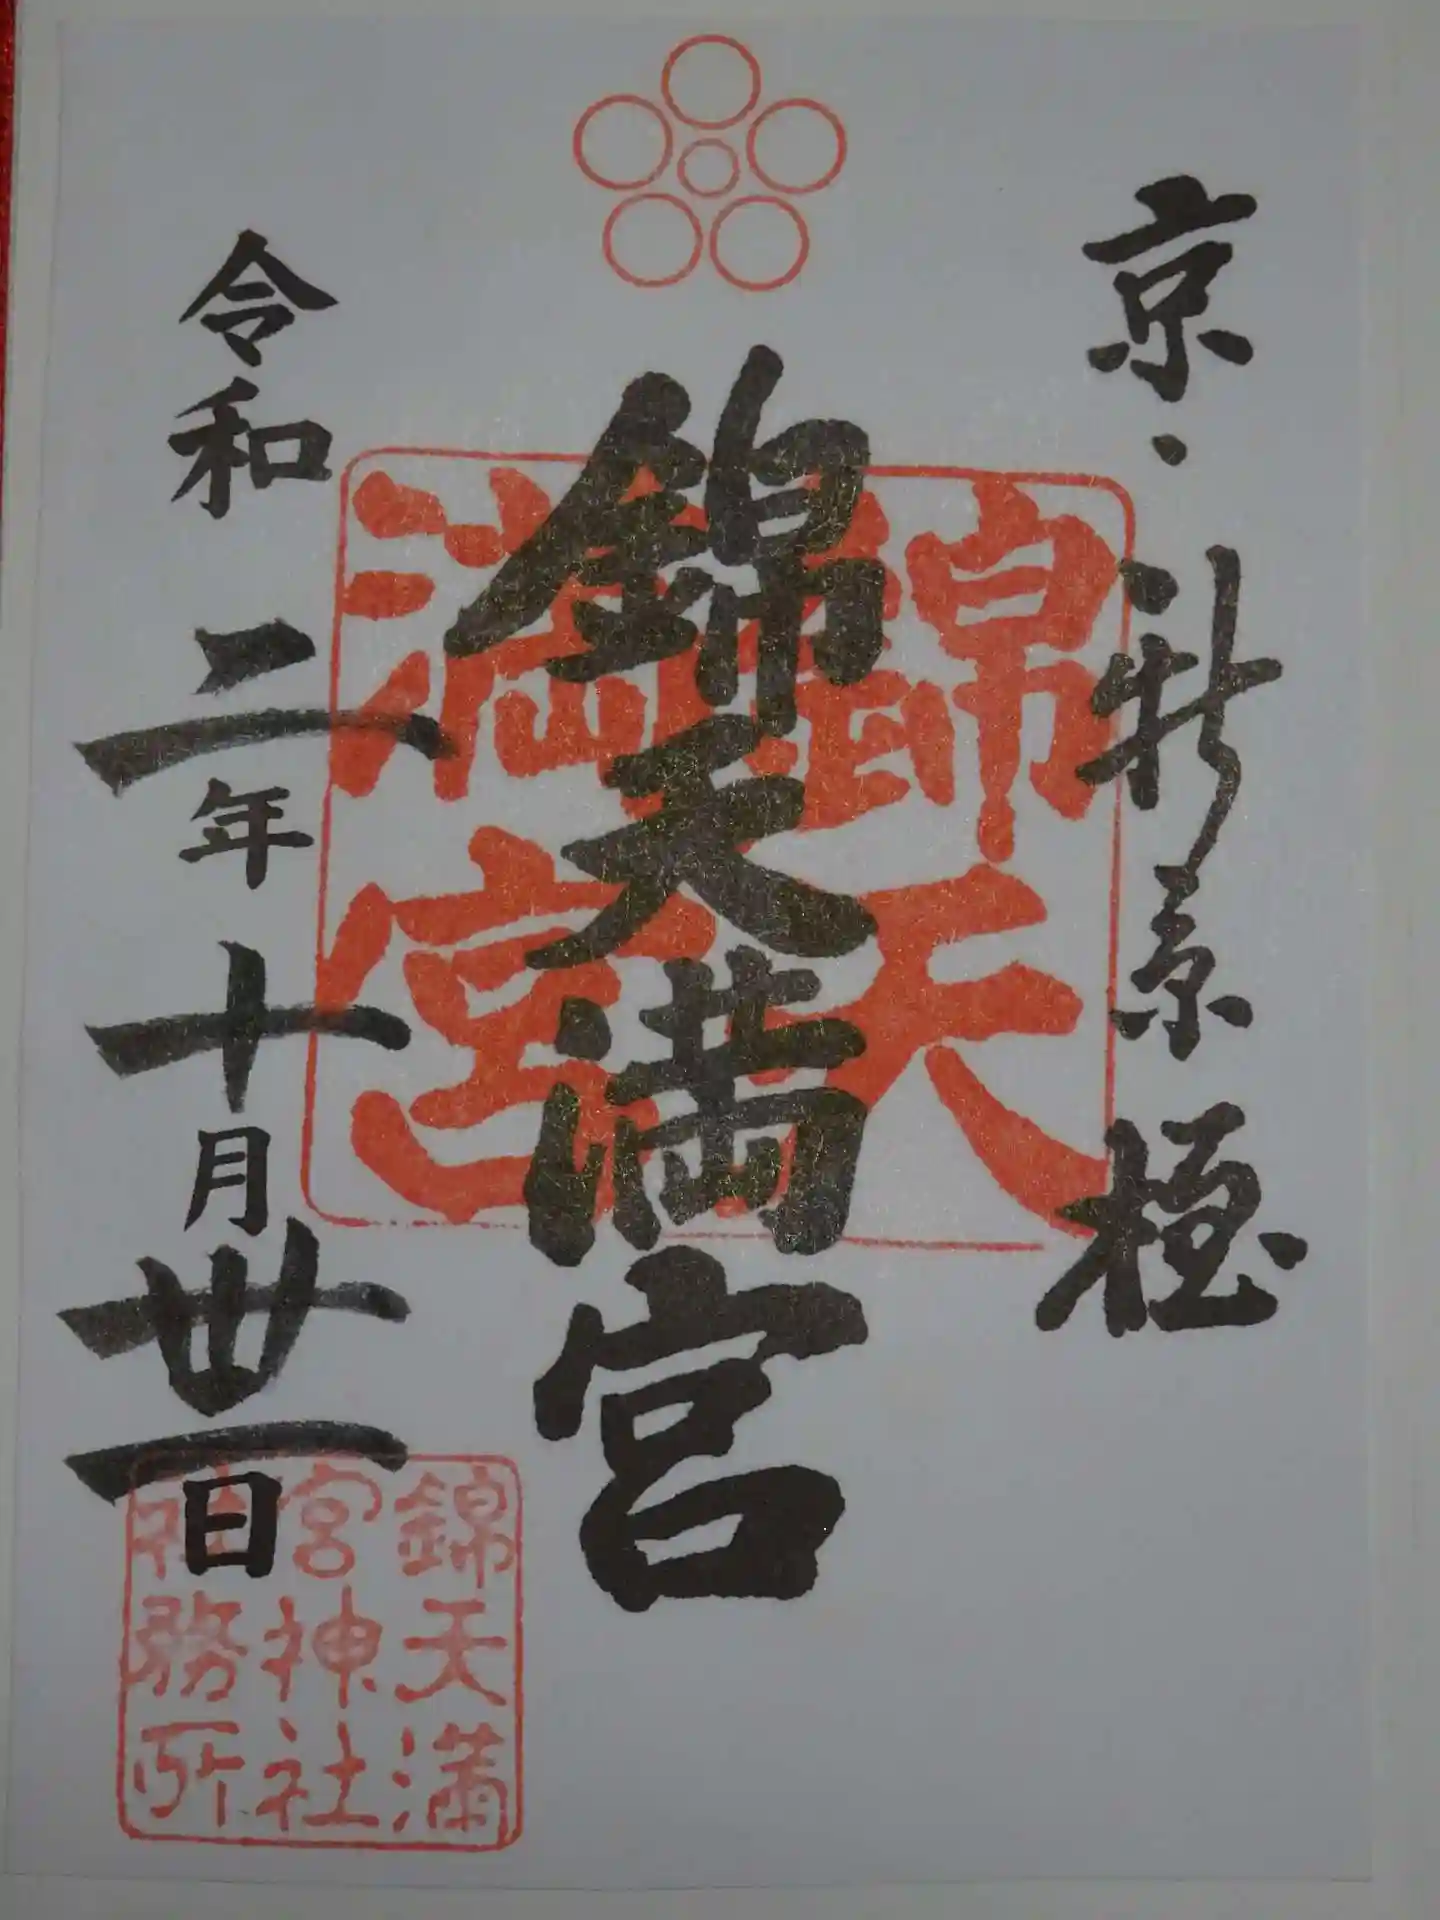 京・新京極
錦天満宮
令和二年十月丗一日
錦天
満宮
錦天満
宮神社
社務所